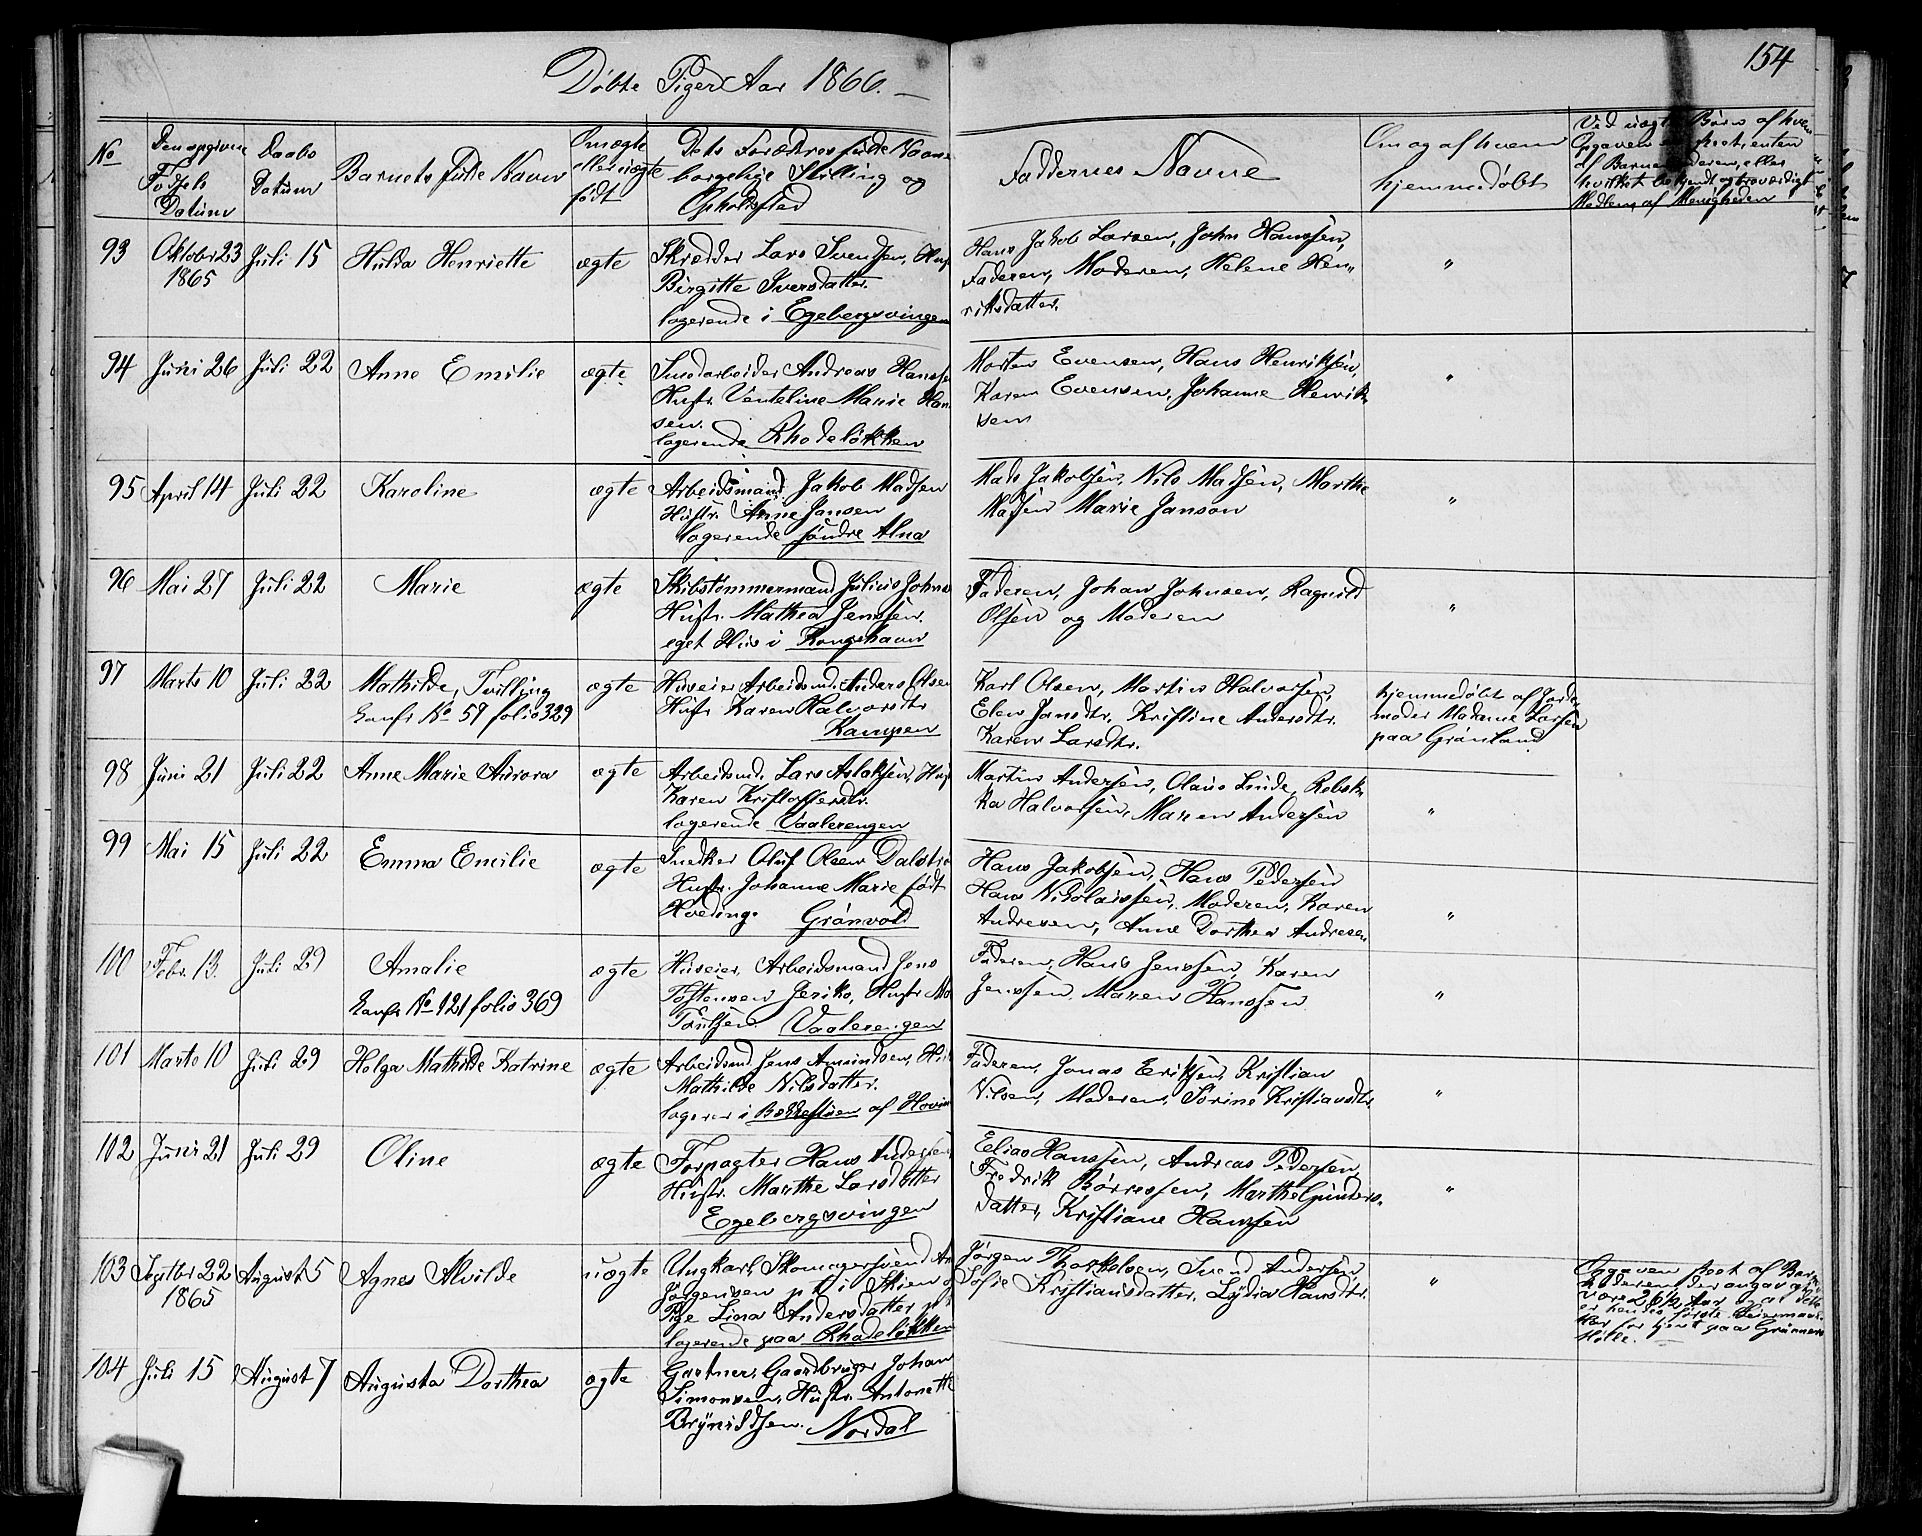 154
Döbte Piger Aar 1866.
No
Den opgivne Födsels Datum
Daabs Datum
Barnets fulde Navn
Om ægte eller uægte födt
Dets Forældres fulde Navne borgelige Stilling og Opholdsted
Faddernes Navne
Om og af hvem hjemmedöbt
Ved uægte Börn af hvem
Opgaven er skeet, enten
af Barnefaderen, eller
hvilket bekjendt og troværdigt
Medlem af Menigheden
93 Oktober 23 1865 Juli 15 Hulda Henriette ægte
Skrædder Lars Svensen, Huf
Birgitte Iversdatter.
logerende i Egebergsvingen
Hans Jakob Larsen, John Hanssen,
Faderen, Moderen, Helene Hen„
riksdatter. „
94 Juni 26 Juli 22 Anne Emilie ægte
Andreas Hansse
Hustr. Venteline Marie Han
sen.
logerende Rhodelökken
Morten Evensen, Hans Henriksen,
Karen Evensen, Johanne Henrik„
sen „
95 April 14 Juli 22 Karoline ægte
Arbeidsmand Jakob Madsen
Hustr. Anne Jansen
logerende söndre Alna
Mads Jakobsen, Nils Madsen, Marthe
Madsen Marie Janson „
96 Mai 27 Juli 22 Marie ægte
Skibstömmermand Julius Johns
Hustr. Mathea Jenssen.
eget Hus i Kongshavn
Faderen, Johan Johnsen, Ragnild
Olsen og Moderen „
97 Marts 10 Juli 22 Mathilde, Tvilling ægte
Confr No 59 folio 329
Huseier Arbeidsmd. Anders Olsen
Hustr Karen Halvorsdtr
Kampen
Karl Olsen, Martin Halvorsen,
Elen Jansdtr. Kristine Andersdtr.
Karen Larsdtr.
hjemmedöbt af Jorde
moder Madame Larsen
paa Grönland
98 Juni 21 Juli 22 Anne Marie Aurora ægte
Arbeidsmd. Lars Aslaksen, Huf
Karen Kristoffersdtr.
logerende Vaalerengen
Martin Andersen, Olaus Linde, Rebek„
ka Halvorsen, Maren Andersen „
99 Mai 15 Juli 22 Emma Emilie ægte
Snedker Oluf Olsen Dalströ
Hustr. Johanne Marie födt
Hveding. Grönvold
Hans Jakobsen, Hans Pedersen
Hans Nikolaissen, Moderen, Karen
Andresen, Anne Dorthea Andresen „
100 Febr. 13. Juli 29 Amalie ægte
Confr No 121 folio 369
Huseier, Arbeidsmand Jens
Tostensen Jeriko, Hustr
Poulsen Vaalerengen
Faderen, Hans Jenssen, Karen
Jenssen. Maren Hanssen „
101 Marts 10 Juli 29 Helga Mathilde Katrine ægte
Arbeidsmd. Jens Amundsen, Hu
Mathilde Nilsdatter.
logerer i Bekkestuen af Hovin
Faderen, Jonas Eriksen, Kristian
Nilsen, Moderen, Sörine Kristiansdtr „
102 Juni 21 Juli 29 Oline ægte
Forpagter Hans Andersen,
Hustr. Marthe Larsdatter
Egebergsvingen
Elias Hanssen, Andreas Pedersen
Fredrik Börresen, Marthe Gunders„
datter, Kristiane Hanssen „
103 Septbr 22 1865 August 5 Agnes Alvilde uægte
Ungkarl, Skomagersvend An
Jörgensen p.t. i Skien og
Pige Lina Andersdatter p.t
logerende paa Rhodelökken
Jörgen Thorkelsen, Svend Andersen
Sofie Kristiansdatter, Lydia Hansdtr. „
Opgaven skeet af Barne
faderen, der angav
være 26½ Aar, at dette
er hendes förste Leiermaal.
Har för tjent paa Grünners
Mölle.
104 Juli 15 August 7 Augusta Dorthea ægte
Gartner, Gaardbruger Johan
Simonsen, Hustr. Antonette
Brynildsen. Nordal